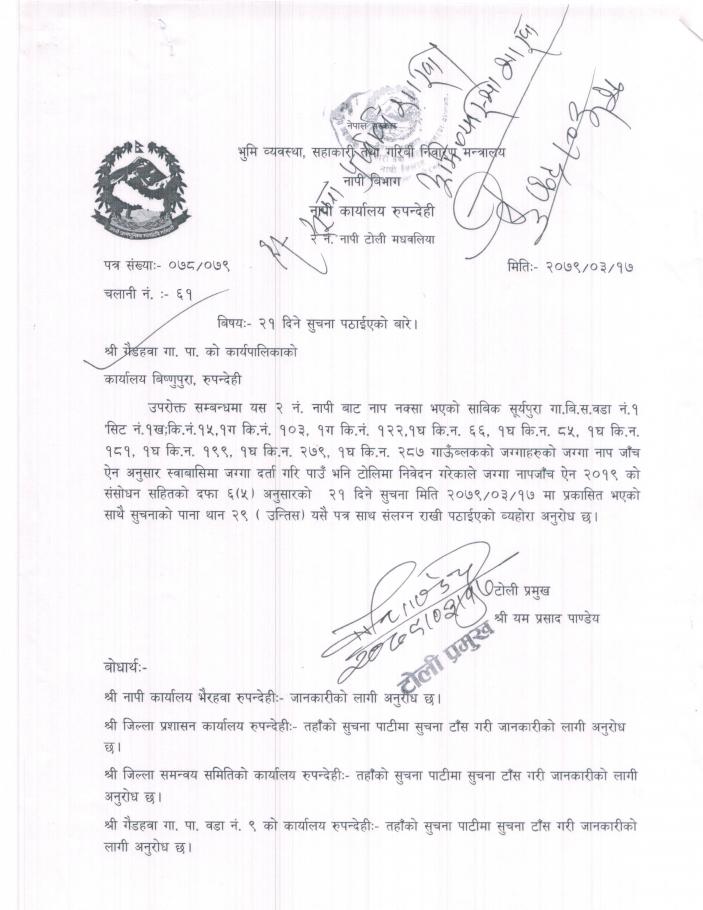 नेपाल सरकार
भुमि व्यवस्था, सहाकारी तथा गरिवी निवारण मन्त्रालय
नापी विभाग
नापी कार्यालय रुपन्देही
२ नं. नापी टोली मधवलिया
पत्र संख्याः- ०७८/०७९
मितिः- २०७९/०३/१७
चलानी नं. :- ६१
विषयः- २१ दिने सुचना पठाईएको बारे।
श्री गैडहवा गा. पा. को कार्यपालिकाको
कार्यालय बिष्णुपुरा, रुपन्देही
उपरोक्त सम्बन्धमा यस २ नं. नापी बाट नाप नक्सा भएको साबिक सूर्यपुरा गा.बि.स.वडा नं.१
सिट नं.१ख;कि.नं.१५,१ग कि.नं. १०३, १ग कि.नं. १२२,१घ कि.न. ६६, १घ कि.न. ८५, १घ कि.न.
१८१, १घ कि.न. १९९, १घ कि.न. २७९, १घ कि.न. २८७ गाऊँब्लकको जग्गाहरुको जग्गा नाप जाँच
ऐन अनुसार स्वाबासिमा जग्गा दर्ता गरि पाउँ भनि टोलिमा निवेदन गरेकाले जग्गा नापजाँच ऐन २०१९ को
संसोधन सहितको दफा ६(५) अनुसारको २१ दिने सुचना मिति २०७९/०३/१७ मा प्रकासित भएको
साथै सुचनाको पाना थान २९ ( उन्तिस) यसै पत्र साथ संलग्न राखी पठाईएको व्यहोरा अनुरोध छ।
२०७९/०३/१७
टोली प्रमुख
श्री यम प्रसाद पाण्डेय
टोली प्रमुख
बोधार्थः-
श्री नापी कार्यालय भैरहवा रुपन्देहीः- जानकारीको लागी अनुरोध छ।
श्री जिल्ला प्रशासन कार्यालय रुपन्देहीः- तहाँको सुचना पाटीमा सुचना टाँस गरी जानकारीको लागी अनुरोध
छ।
श्री जिल्ला समन्वय समितिको कार्यालय रुपन्देहीः- तहाँको सुचना पाटीमा सुचना टाँस गरी जानकारीको लागी
अनुरोध छ।
श्री गैडहवा गा. पा. वडा नं. ९ को कार्यालय रुपन्देहीः- तहाँको सुचना पाटीमा सुचना टाँस गरी जानकारीको
लागी अनुरोध छ।